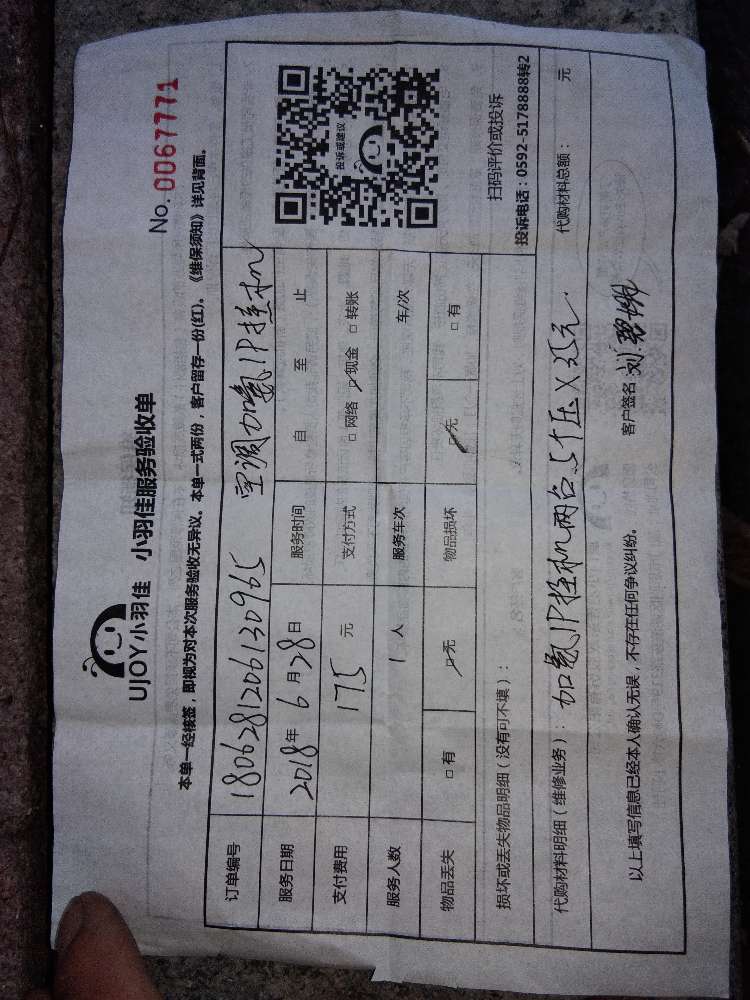 UJOY小羽佳 小羽佳服务验收单
No. 0067771
本单一经核签，即视为对本次服务验收无异议。本单一式两份，客户留存一份(红)。《维保须知》详见背面。
订单编号 1806281206130965 空调加氨1P挂机
服务日期 2018年6月28日 服务时间 自 至 止
支付费用 175 元 支付方式 □ 网络 □现金 □ 转账
服务人数 1 人 服务车次 车/次
物品丢失 □ 有 □无 物品损坏 □无 □ 有
投诉或建议
扫码评价或投诉
投诉电话：0592-5178888转2
损坏或丢失物品明细（没有可不填）：
代购材料明细（维修业务）：加氨1P挂机两台.5个压X35元. 代购材料总额： 元
以上填写信息已经本人确认无误，不存在任何争议纠纷。 客户签名 刘碧